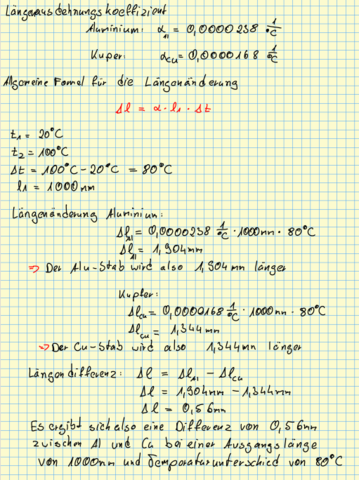 Längenausdehnungskoeffizient
Aluminium: α_Al = 0,0000238 1/°C
Kuper: α_Cu = 0,0000168 1/°C
Allgemeine Formel für die Längenänderung
Δl = α · l₁ · Δt
t₁ = 20°C
t₂ = 100°C
Δt = 100°C - 20°C = 80°C
l₁ = 1000mm
Längenänderung Aluminium:
Δl_Al = 0,0000238 1/°C · 1000mm · 80°C
Δl_Al = 1,904mm
⇒ Der Alu-Stab wird also 1,904mm länger
Kupfer:
Δl_Cu = 0,0000168 1/°C · 1000mm · 80°C
Δl_Cu = 1,344mm
⇒ Der Cu-Stab wird also 1,344mm länger
Längendifferenz: Δl = Δl_Al - Δl_Cu
Δl = 1,904mm - 1,344mm
Δl = 0,56mm
Es ergibt sich also eine Differenz von 0,56mm
zwischen Al und Cu bei einer Ausgangslänge
von 1000mm und Temperaturunterschied von 80°C